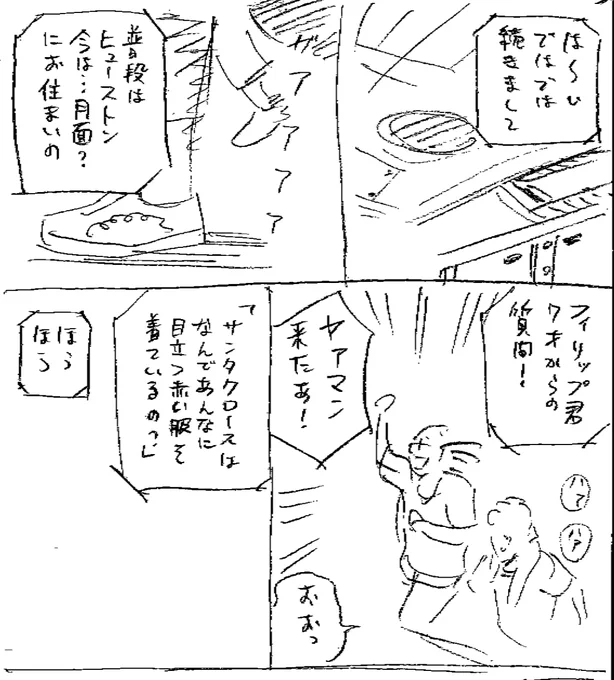 は〜い
ではでは
続きまして
ザァァァァ
普段は
ヒューストン
今は…月面?
にお住まいの
フィリップ君
7才からの
質問!
ハァ
ハァ
ヤアマン
来たぁ!
おおっ
「サンタクロースは
なんであんなに
目立つ赤い服を
着ているのっ」
ほう
ほう